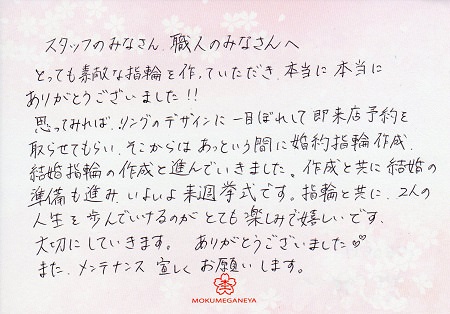 スタッフのみなさん、職人のみなさんへ
とっても素敵な指輪を作っていただき、本当に本当に
ありがとうございました!!
思ってみれば、リングのデザインに一目ぼれして即来店予約を
取らせてもらい、そこからはあっという間に婚約指輪作成、
結婚指輪の作成と進んでいきました。作成と共に結婚の
準備も進み、いよいよ来週挙式です。指輪と共に、2人の
人生を歩んでいけるのがとても楽しみで嬉しいです。
大切にしていきます。ありがとうございました♡♡
また、メンテナンス宜しくお願いします。
MOKUMEGANEYA